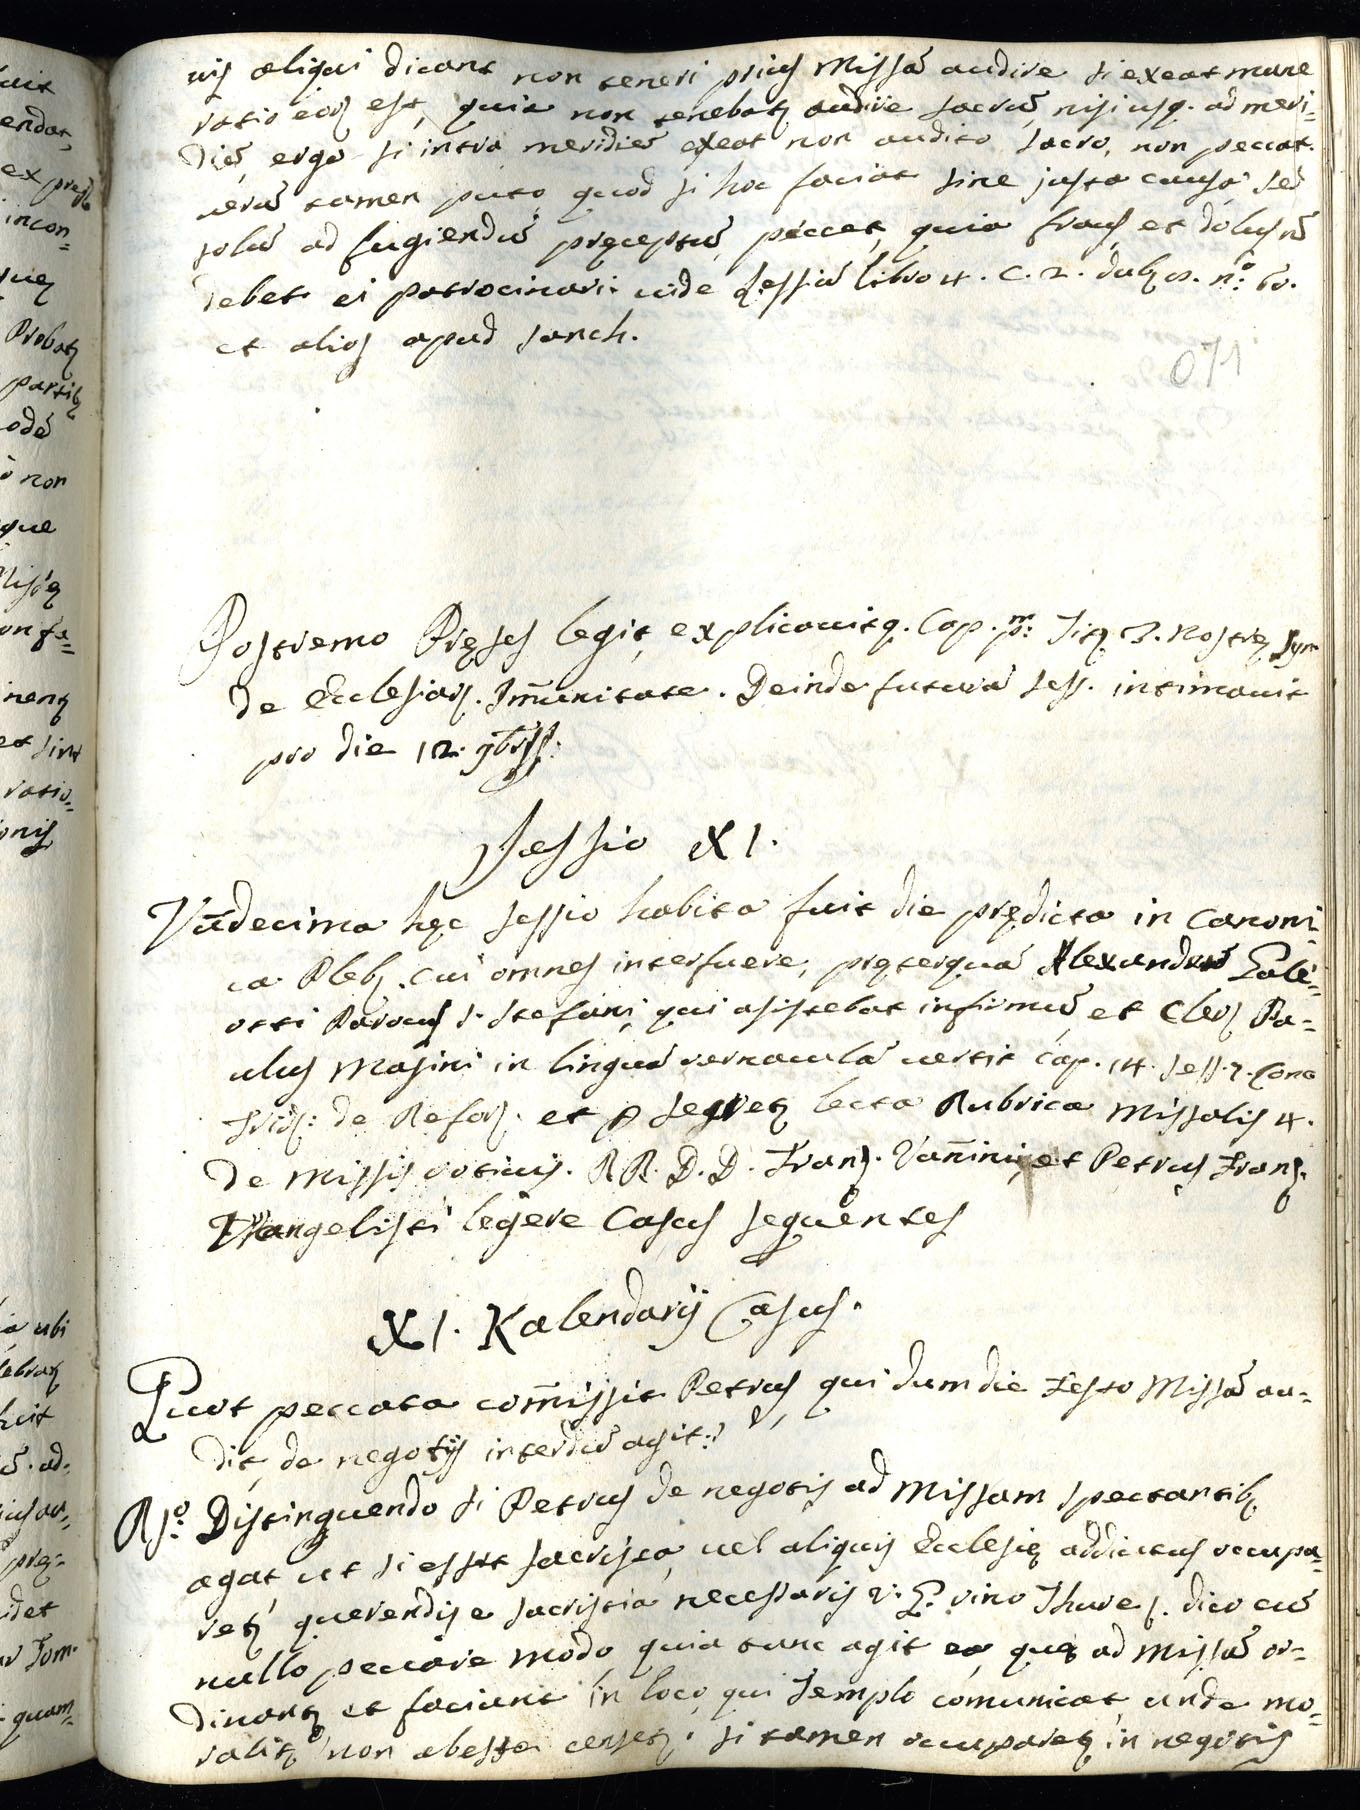 uis aliqui dicant non teneri prius Missã audire si exeat mane
ratio eorũ est, quia non tenebatʳ audire sacrũ, nisi usq. ad meri-
diẽ, ergo si intra meridiẽ exeat non audito sacro, non peccat.
uerũ tamen puto quod si hoc faciat sine justa causa sed
solũ ad fugiendũ pręceptũ, peccet, quia fraus et dolus nõ
debet ei patrocinari. uide Lessiũ libro 4. c. 2. dub. 8. nº: 60.
et alios apud sanch.
071
Postremo Pręses legit, explicauitq. Cap. pᵐ: Tit. 3. Nostrę Syn
de Ecclesiarũ. Im̃unitate. Deinde futurã sess. intimauit
pro die 12. 9bris:
Sessio XI.
Vñdecima hęc sessio habita fuit die prędicta in Canoni-
ca Pleb. cui omnes interfuere, pręterquã Alexandrũ Gale-
otti Parocus S. Stefani, qui asistebat infirmũ, et Cler. Pa-
ulus Masini in linguã vernaculã uertit cap. 14. sess. 7. Conc
Trid: de Refor. et p Segret lecta Rubrica Missalis 4.
de Missis votiuis. RR. D. D. Franc. Vañini, et Petrus Franc.
Vangelisti legere Casus sequentes
XI. Kalendarij Casus.
Quot peccata com̃issit Petrus qui dum die Festo Missã au-
dit, de negotijs interdũ agit?
Rsº: Distinguendo si Petrus de negotijs ad Missam spectantibʒ
agat ut si esset sacrista, uel aliquis Ecclesię addictus occupa-
retʳ querendis e sacristia necessarijs v. g. vino Thure s. dico eũ
nullo peccare modo quia tunc agit ea quę ad Missã or-
dinantʳ et faciunt in loco, qui Templo comunicat, unde mo-
ralitʳ non abesse censetʳ. si tamen occuparetʳ in negotijs